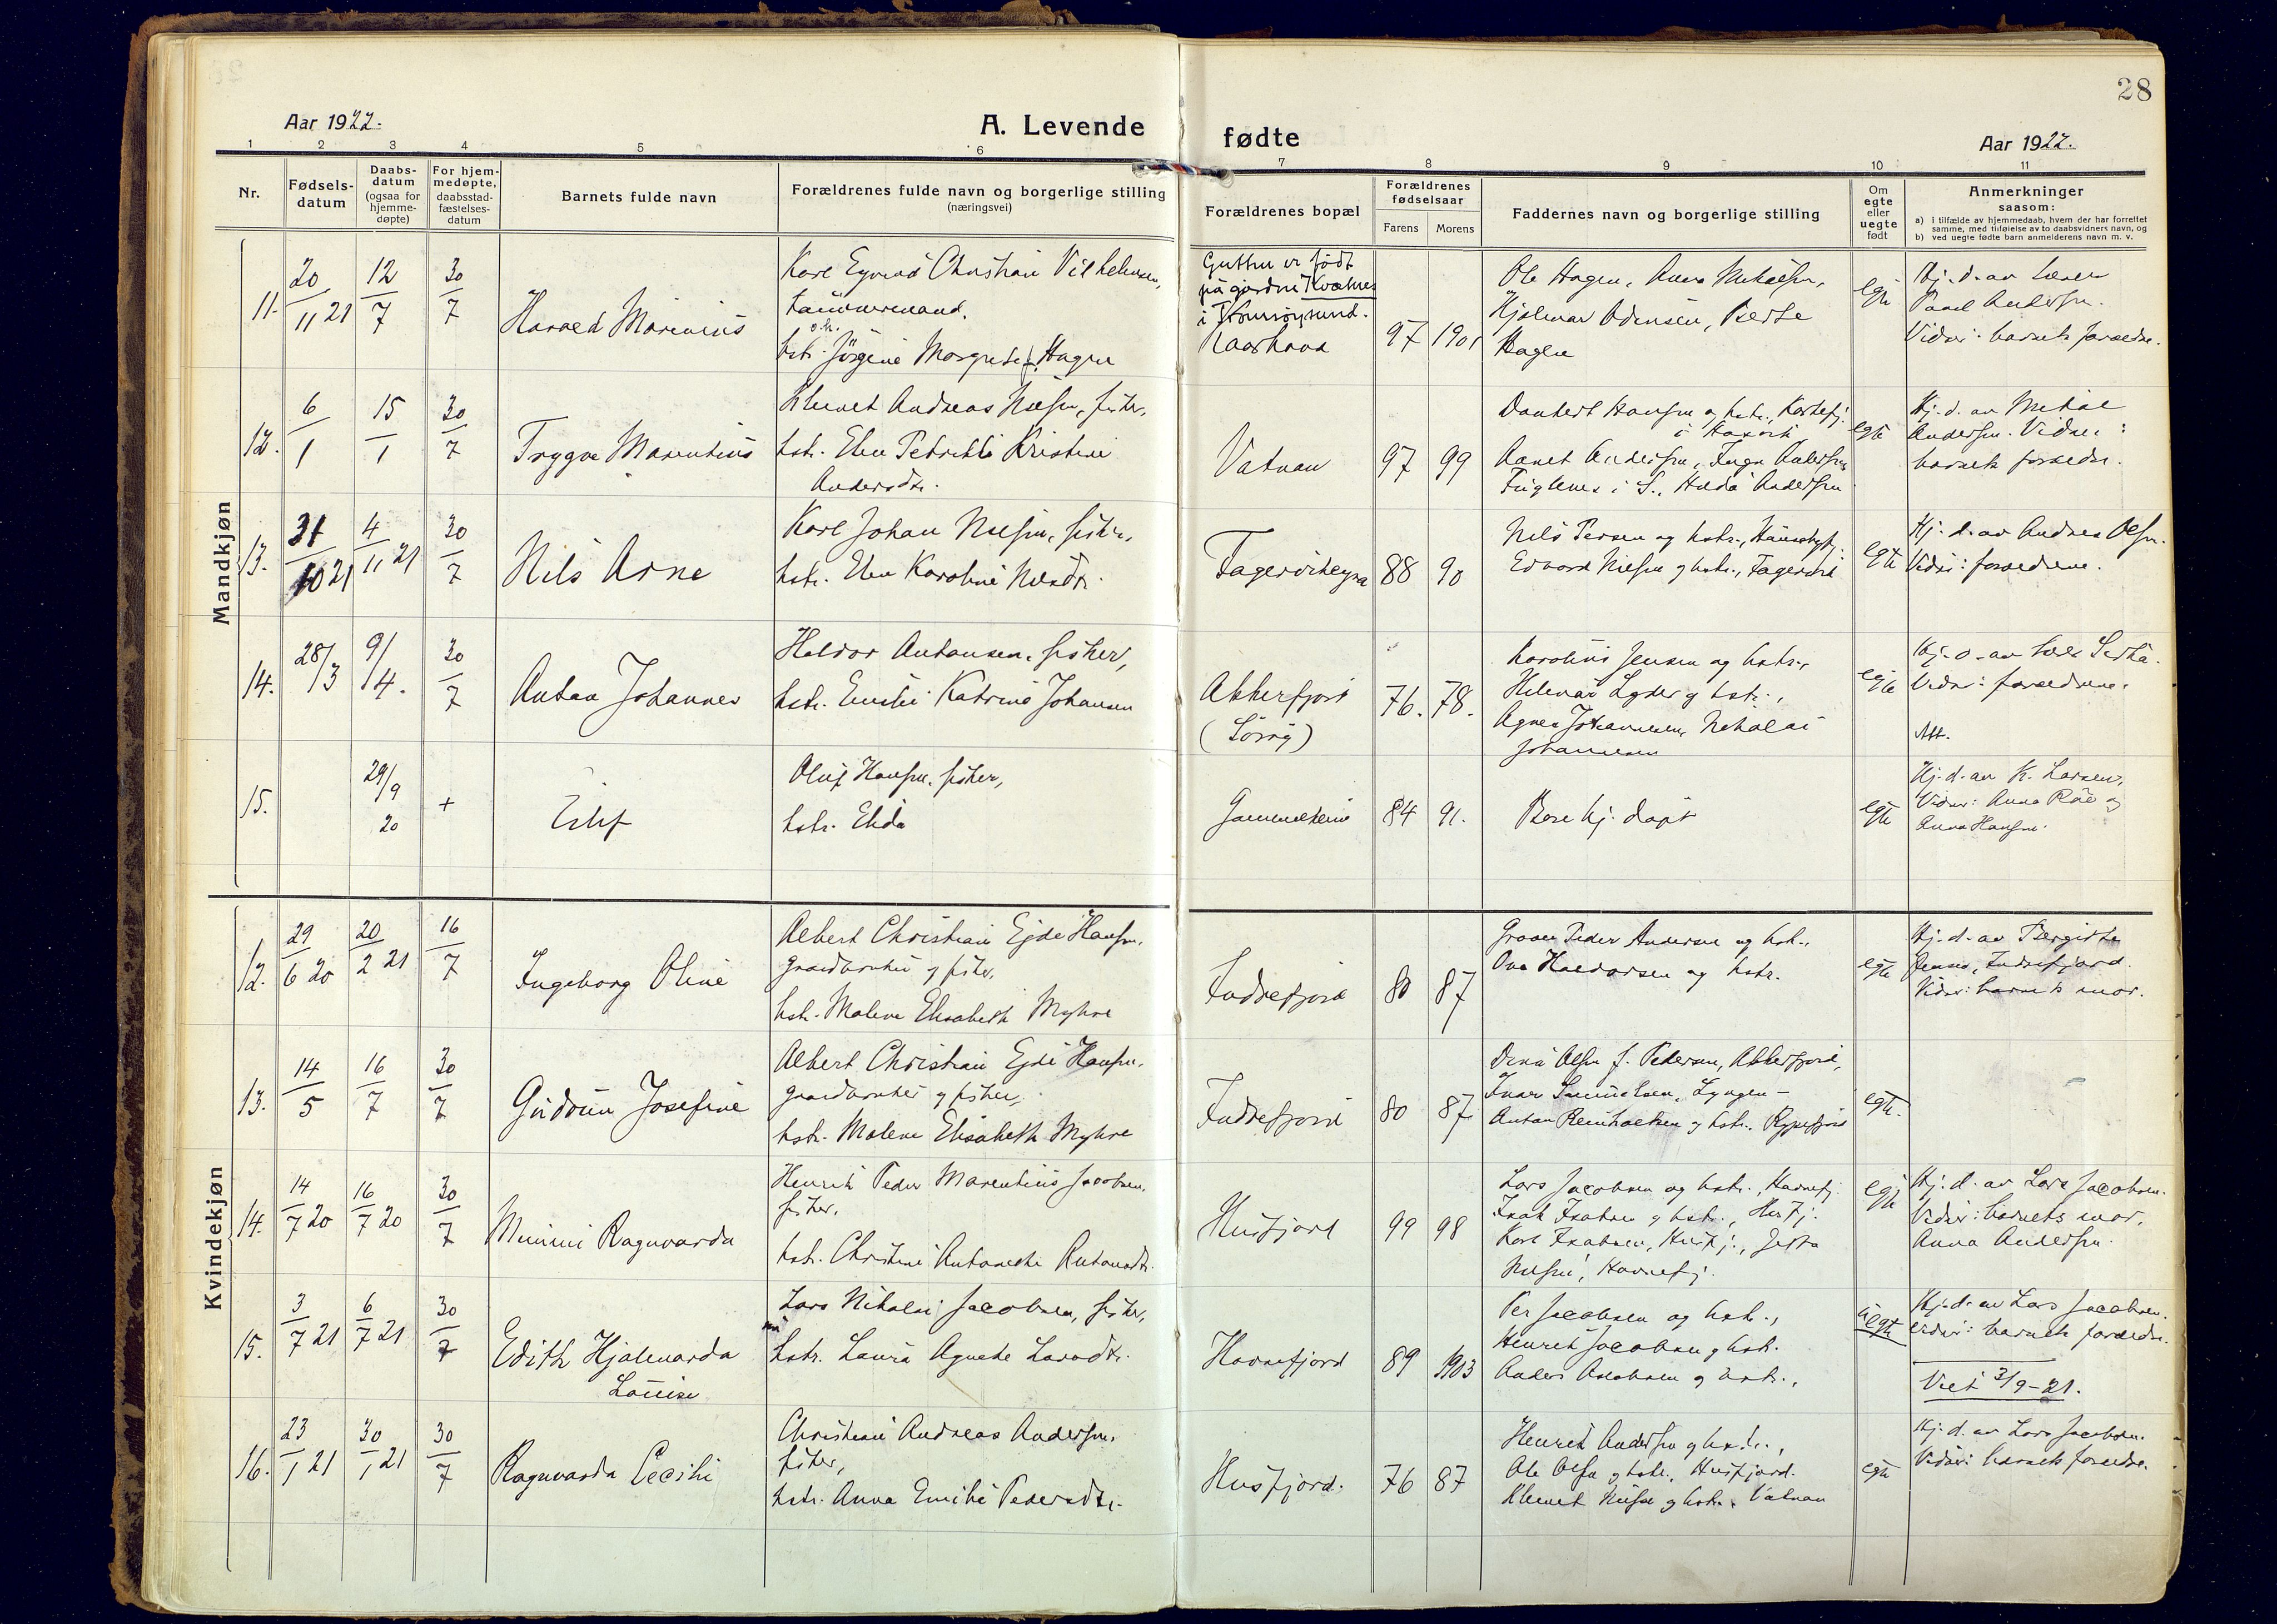 28
Aar 1922.
A. Levende
fødte
Aar 1922.
1 2 3 4 5 6 7 8 9 10 11
Nr.
Fødsels-
datum
Daabs-
datum
(ogsaa for
hjemme-
døpte)
For hjem-
medøpte,
daabsstad-
fæstelses-
datum
Barnets fulde navn
Forældrenes fulde navn og borgerlige stilling
(næringsvei)
Forældrenes bopæl
Forældrenes
fødselsaar
Farens Morens
Faddernes navn og borgerlige stilling
Om
egte
eller
uegte
født
Anmerkninger
saasom:
a) i tilfælde av hjemmedaab, hvem der har forrettet
samme, med tilføielse av to daabsvidners navn, og
b) ved uegte fødte barn anmelderens navn m. v.
Mandkjøn
11. 20/11 21 12/7 30/7
Harald Marinius
Karl Eyvind Christian Vilhelmsen,
tømmermand.
hstr. Jörgine Margrete f. Hagen
Gutten er født
på gården Kvalnes
i
97 1901
Ole Hagen,
Hjalmar Odinsen, Berte
Hagen
egte
Hj. d. av lærer
Paul Andersen.
Vidner: barnets forældre.
12. 6/1 15/1 30/7
Trygve Marentius
Klemet Andreas Nilsen, fisker,
hstr. Elen Petrikke Kristine
Andersdtr.
Vatnan
97 99
Hansen og hstr.,
Andersen,
Fuglenes i S., Hilda Andersen
egte
Hj. d. av Mikal
Andersen. Vidner:
barnets forældre.
13. 31/10 21 4/11 21 30/7
Nils Arne
Karl Johan Nilsen, fisker,
hstr. Elen Karoline Nilsdtr.
88 90
Nils Persen og hstr.,
Edvard Nilsen og hstr., Fagervik
egte
Hj. d. av Andreas Olsen.
Vidner: forældrene.
14. 28/3 9/4. 30/7
Anton Johannes
Haldor Antonsen, fisker,
hstr. Emilie Katrine Johansen
Akkerfjord
(Sørøy)
76. 78.
Karolius Jensen og hstr.,
Hilmar Lyder og hstr.,
Agnes Johannesen, Nikolai
Johannesen
egte
Hj. d. av
Vidner: forældrene.
Att.
15. 29/9 20 +
Eilif
Oluf Hansen, fisker,
hstr. Elida
84 91.
Bare hj. døpt
egte
Hj. d. av K. Larsen,
Vidner: Anna og
Anna Hansen.
Kvindekjøn
12. 29/6 20 20/2 21 16/7
Ingeborg Oline
Albert Christian Ejde Hansen,
gaardbruker og fisker,
hstr. Malene Elisabeth Myhre
Indrefjord
80 87
Peder Andersen og hstr.,
Haldorsen og hstr.
egte
Hj. d. av Bergitte
Jensen, Indrefjord.
Vidner: barnets mor.
13. 14/5 16/7 30/7
Gudrun Josefine
Albert Christian Ejde Hansen,
gaardbruker og fisker,
hstr. Malene Elisabeth Myhre
Indrefjord
80 87
Olsen f. Pedersen, Akkerfjord,
Ivar Samuelsen, Lyngen –
Anton Reinholtsen og hstr., Rypefjord
egte.
14. 14/7 20 16/7 20 30/7
Mimmi Ragnvarda
Henrik Peder Marentius Jacobsen,
fisker,
hstr. Christine Antonette Antonsdtr.
Husfjord
99 98
Lars Jacobsen og hstr., Havnefj.
Isak Isaksen og hstr., Husfj.
Karl Isaksen, Husfj.,
Nilsen, Havnefj.
egte
Hj. d. av Lars Jacobsen.
Vidner: barnets mor,
Anna Andersen.
15. 3/7 21 6/7 21 30/7
Edith Hjalmarda
Louise
Lars Nikolai Jacobsen, fisker,
hstr. Laura Agnete Larsdtr.
Havnefjord
89 1903
Per Jacobsen og hstr.,
Henrik Jacobsen og hstr.
Anders Jacobsen og hstr.,
uegte
Hj. d. av Lars Jacobsen.
Vidner: barnets forældre.
Viet 3/9-21.
16. 23/1 21 30/1 21 30/7
Ragnvarda Cecilie
Christian Andreas Andersen,
fisker,
hstr. Anna Emilie Pedersdtr.
Husfjord.
76 87
Henrik Andersen og hstr.,
Ole Olsen og hstr., Husfjord.
Klemet Nilsen og hstr., Vatnan
egte
Hj. d. av Lars Jacobsen.
Vidner: barnets forældre.